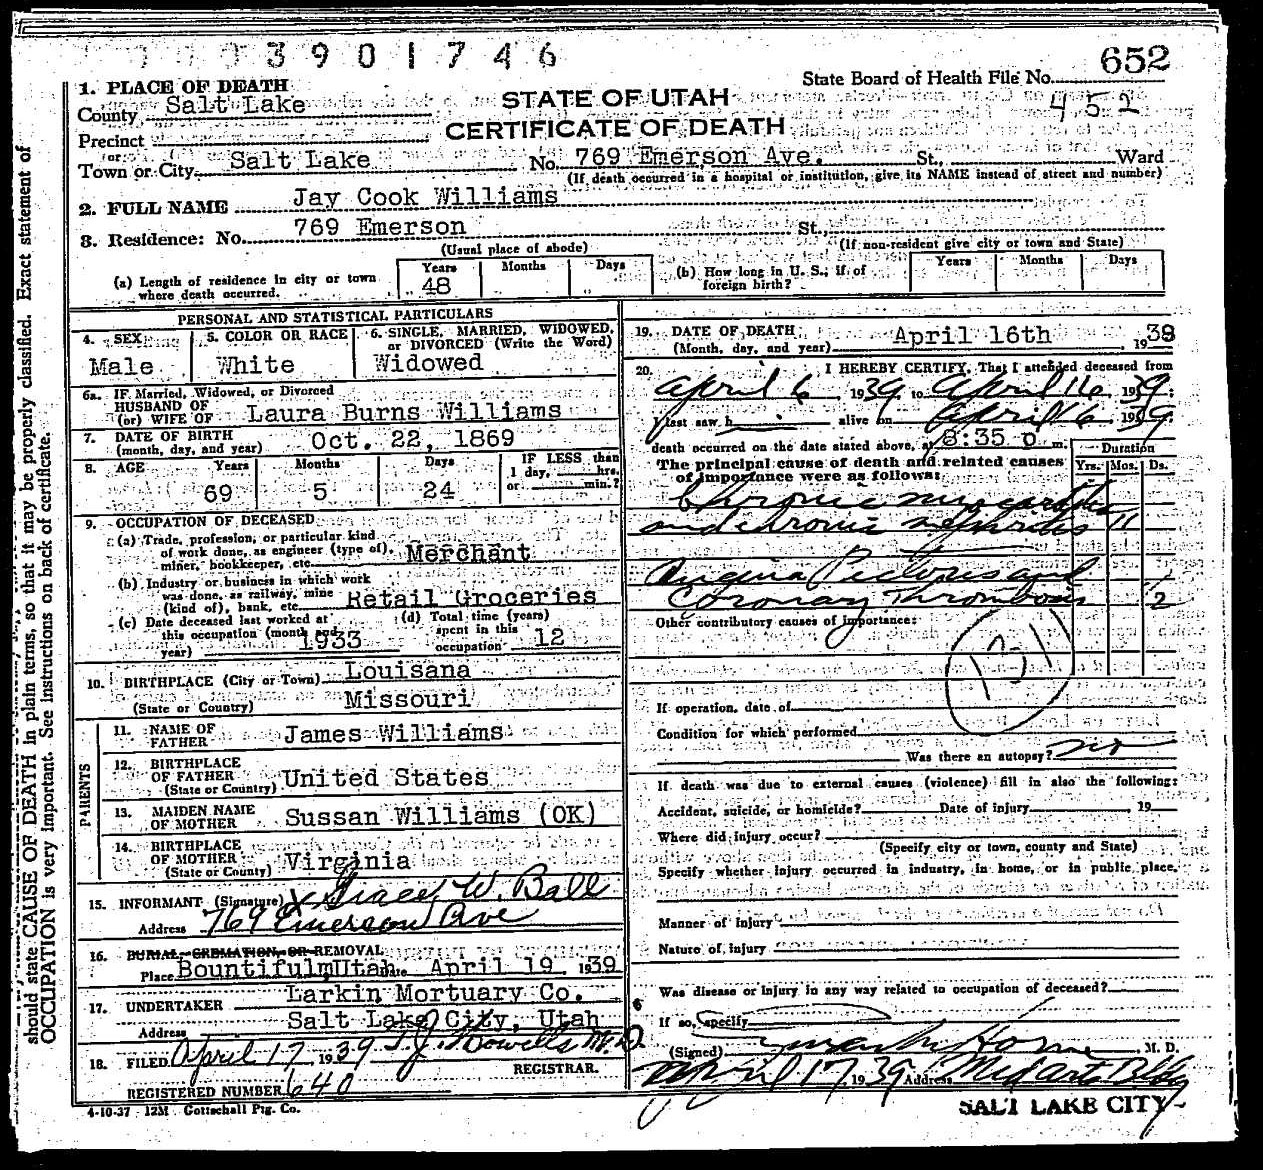 3901746
652
State Board of Health File No.
452
1. PLACE OF DEATH
County Salt Lake
STATE OF UTAH
CERTIFICATE OF DEATH
Precinct
(or)
Town or City Salt Lake No. 769 Emerson Ave. St., Ward
(If death occurred in a hospital or institution, give its NAME instead of street and number)
2. FULL NAME Jay Cook Williams
3. Residence: No. 769 Emerson St.,
(Usual place of abode) (If non-resident give city or town and State)
(a) Length of residence in city or town where death occurred. Years 48 Months Days
(b) How long in U. S.; if of foreign birth? Years Months Days
PERSONAL AND STATISTICAL PARTICULARS
4. SEX Male
5. COLOR OR RACE White
6. SINGLE, MARRIED, WIDOWED, or DIVORCED (Write the Word) Widowed
6a. IF Married, Widowed, or Divorced
HUSBAND OF
(or) WIFE OF Laura Burns Williams
7. DATE OF BIRTH
(month, day, and year) Oct. 22, 1869
8. AGE Years 69 Months 5 Days 24
IF LESS than
1 day, hrs.
or min.?
9. OCCUPATION OF DECEASED
(a) Trade, profession, or particular kind
of work done, as engineer (type of),
miner, bookkeeper, etc. Merchant
(b) Industry or business in which work
was done, as railway, mine
(kind of), bank, etc. Retail Groceries
(c) Date deceased last worked at
this occupation (month and
year) 1933
(d) Total time (years)
spent in this
occupation 12
10. BIRTHPLACE (City or Town) Louisana
(State or Country) Missouri
PARENTS
11. NAME OF
FATHER James Williams
12. BIRTHPLACE
OF FATHER
(State or Country) United States
13. MAIDEN NAME
OF MOTHER Sussan Williams (OK)
14. BIRTHPLACE
OF MOTHER
(State or Country) Virginia
15. INFORMANT (Signature) X Grace W. Ball
Address 769 Emerson Ave
16. BURIAL, CREMATION, OR REMOVAL
Place Bountiful, Utah Date April 19 1939
17. UNDERTAKER Larkin Mortuary Co.
Address Salt Lake City, Utah
18. FILED April 17 1939 T.J. Howells M.D.
REGISTRAR.
REGISTERED NUMBER 640
4-10-37 12M Gottschall Ptg. Co.
19. DATE OF DEATH
(Month, day, and year) April 16th, 1939
20. I HEREBY CERTIFY, That I attended deceased from
April 6 1939 to April 16 1939.
I last saw h alive on April 16 1939
death occurred on the date stated above, at 8:35 p m.
The principal cause of death and related causes
of importance were as follows:
Duration
Yrs. Mos. Ds.
Chronic myocarditis
and chronic nephritis 11
Angina Pectoris and
Coronary Thrombosis 2
Other contributory causes of importance:
131
If operation, date of
Condition for which performed
Was there an autopsy? no
If death was due to external causes (violence) fill in also the following:
Accident, suicide, or homicide? Date of injury 19
Where did injury occur?
(Specify city or town, county and State)
Specify whether injury occurred in industry, in home, or in public place.
Manner of injury
Nature of injury
Was disease or injury in any way related to occupation of deceased?
6
If so, specify
(Signed) Horne M. D.
April 17 1939 Address Med Arts Bldg
SALT LAKE CITY
should state CAUSE OF DEATH in plain terms, so that it may be properly classified. Exact statement of
OCCUPATION is very important. See instructions on back of certificate.